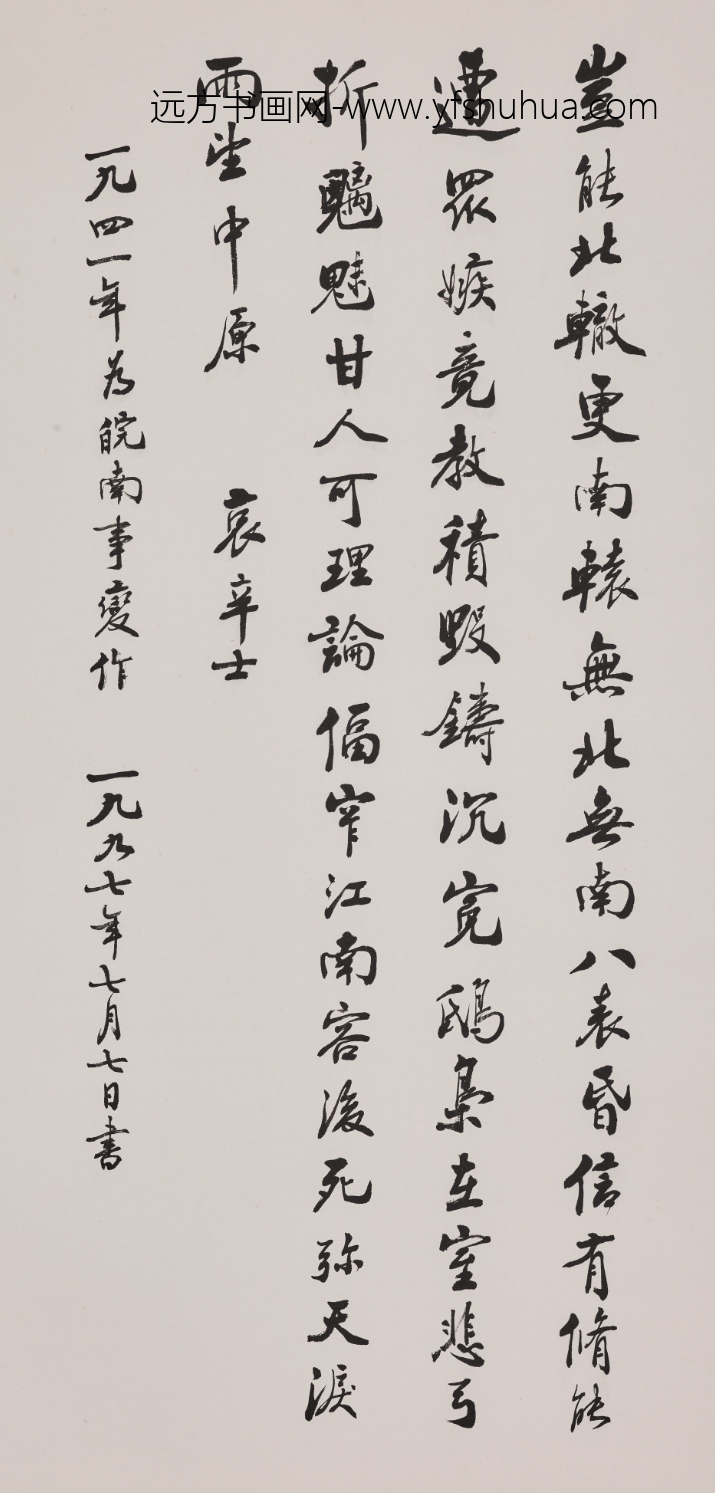 豈能北轍更南轅無北無南八表昏信有脩能
遭眾嫉竟教積毀鑄沉冤鴟梟在室悲弓
折魑魅甘人可理論偪窄江南容後死弥天淚
雨望中原　哀辛士
一九四一年為皖南事變作　一九九七年七月七日書
远方书画网-www.yfshuhua.com